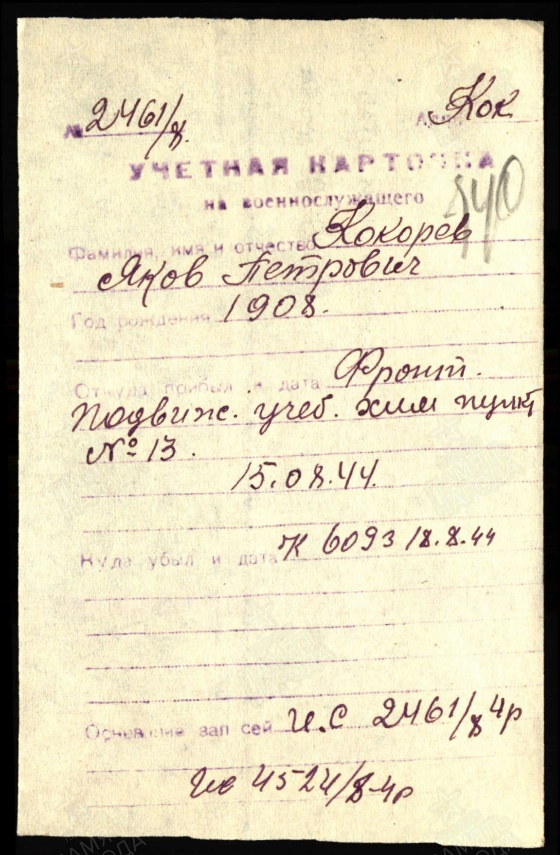 № 2461/8. Кок
УЧЕТНАЯ КАРТОЧКА
на военнослужащего
540
Фамилия, имя и отчество Кокорев
Яков Петрович
Год рождения 1908.
Откуда прибыл и дата Фронт.
подвиж. учеб. хим пункт
№ 13.
15.08.44.
Куда убыл и дата К 6093 18.8.44
Основание зап сей И.С 2461/8 4р
Ис 4524/8-4р